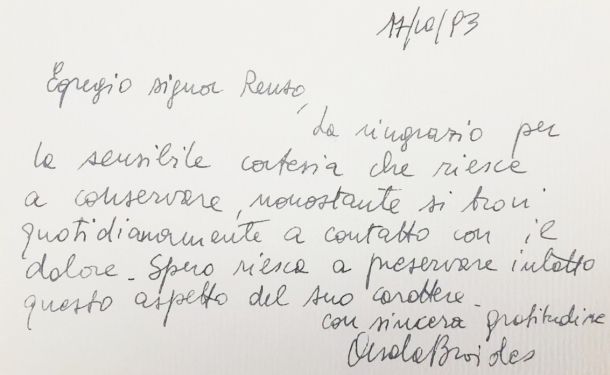 17/10/93
Egregio signor Renso,
La ringrazio per
la sensibile cortesia che riesce
a conservare, nonostante si trovi
quotidianamente a contatto con il
dolore. Spero riesca a preservare intatto
questo aspetto del suo carattere.
con sincera gratitudine